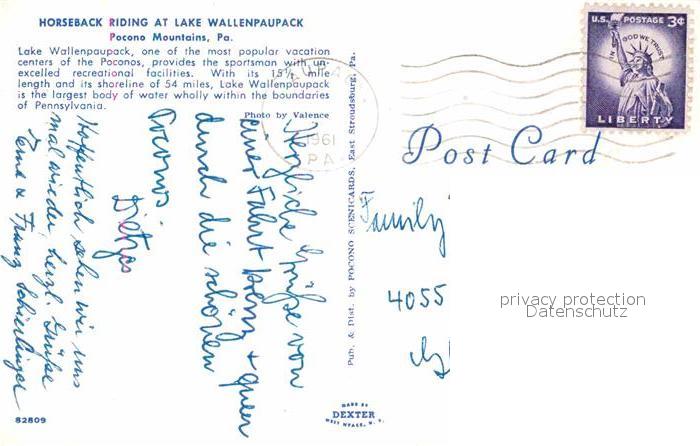 HORSEBACK RIDING AT LAKE WALLENPAUPACK
Pocono Mountains, Pa.
Lake Wallenpaupack, one of the most popular vacation
centers of the Poconos, provides the sportsman with un-
excelled recreational facilities. With its 15½ mile
length and its shoreline of 54 miles, Lake Wallenpaupack
is the largest body of water wholly within the boundaries
of Pennsylvania.
Photo by Valence
Herzliche Grüße von
einer Fahrt kreuz + quer
durch die schönen
Poconos.
Dietzes
Hoffentlich sehen wir uns
mal wieder, herzl. Grüße
&
Franz
82809
Pub. & Dist. by POCONO SCENICARDS, East Stroudsburg, Pa.
MADE BY
DEXTER
WEST NYACK, N. Y.
1961
PA
U.S. POSTAGE 3¢
IN GOD WE TRUST
LIBERTY
Post Card
Family
4055
privacy protection
Datenschutz